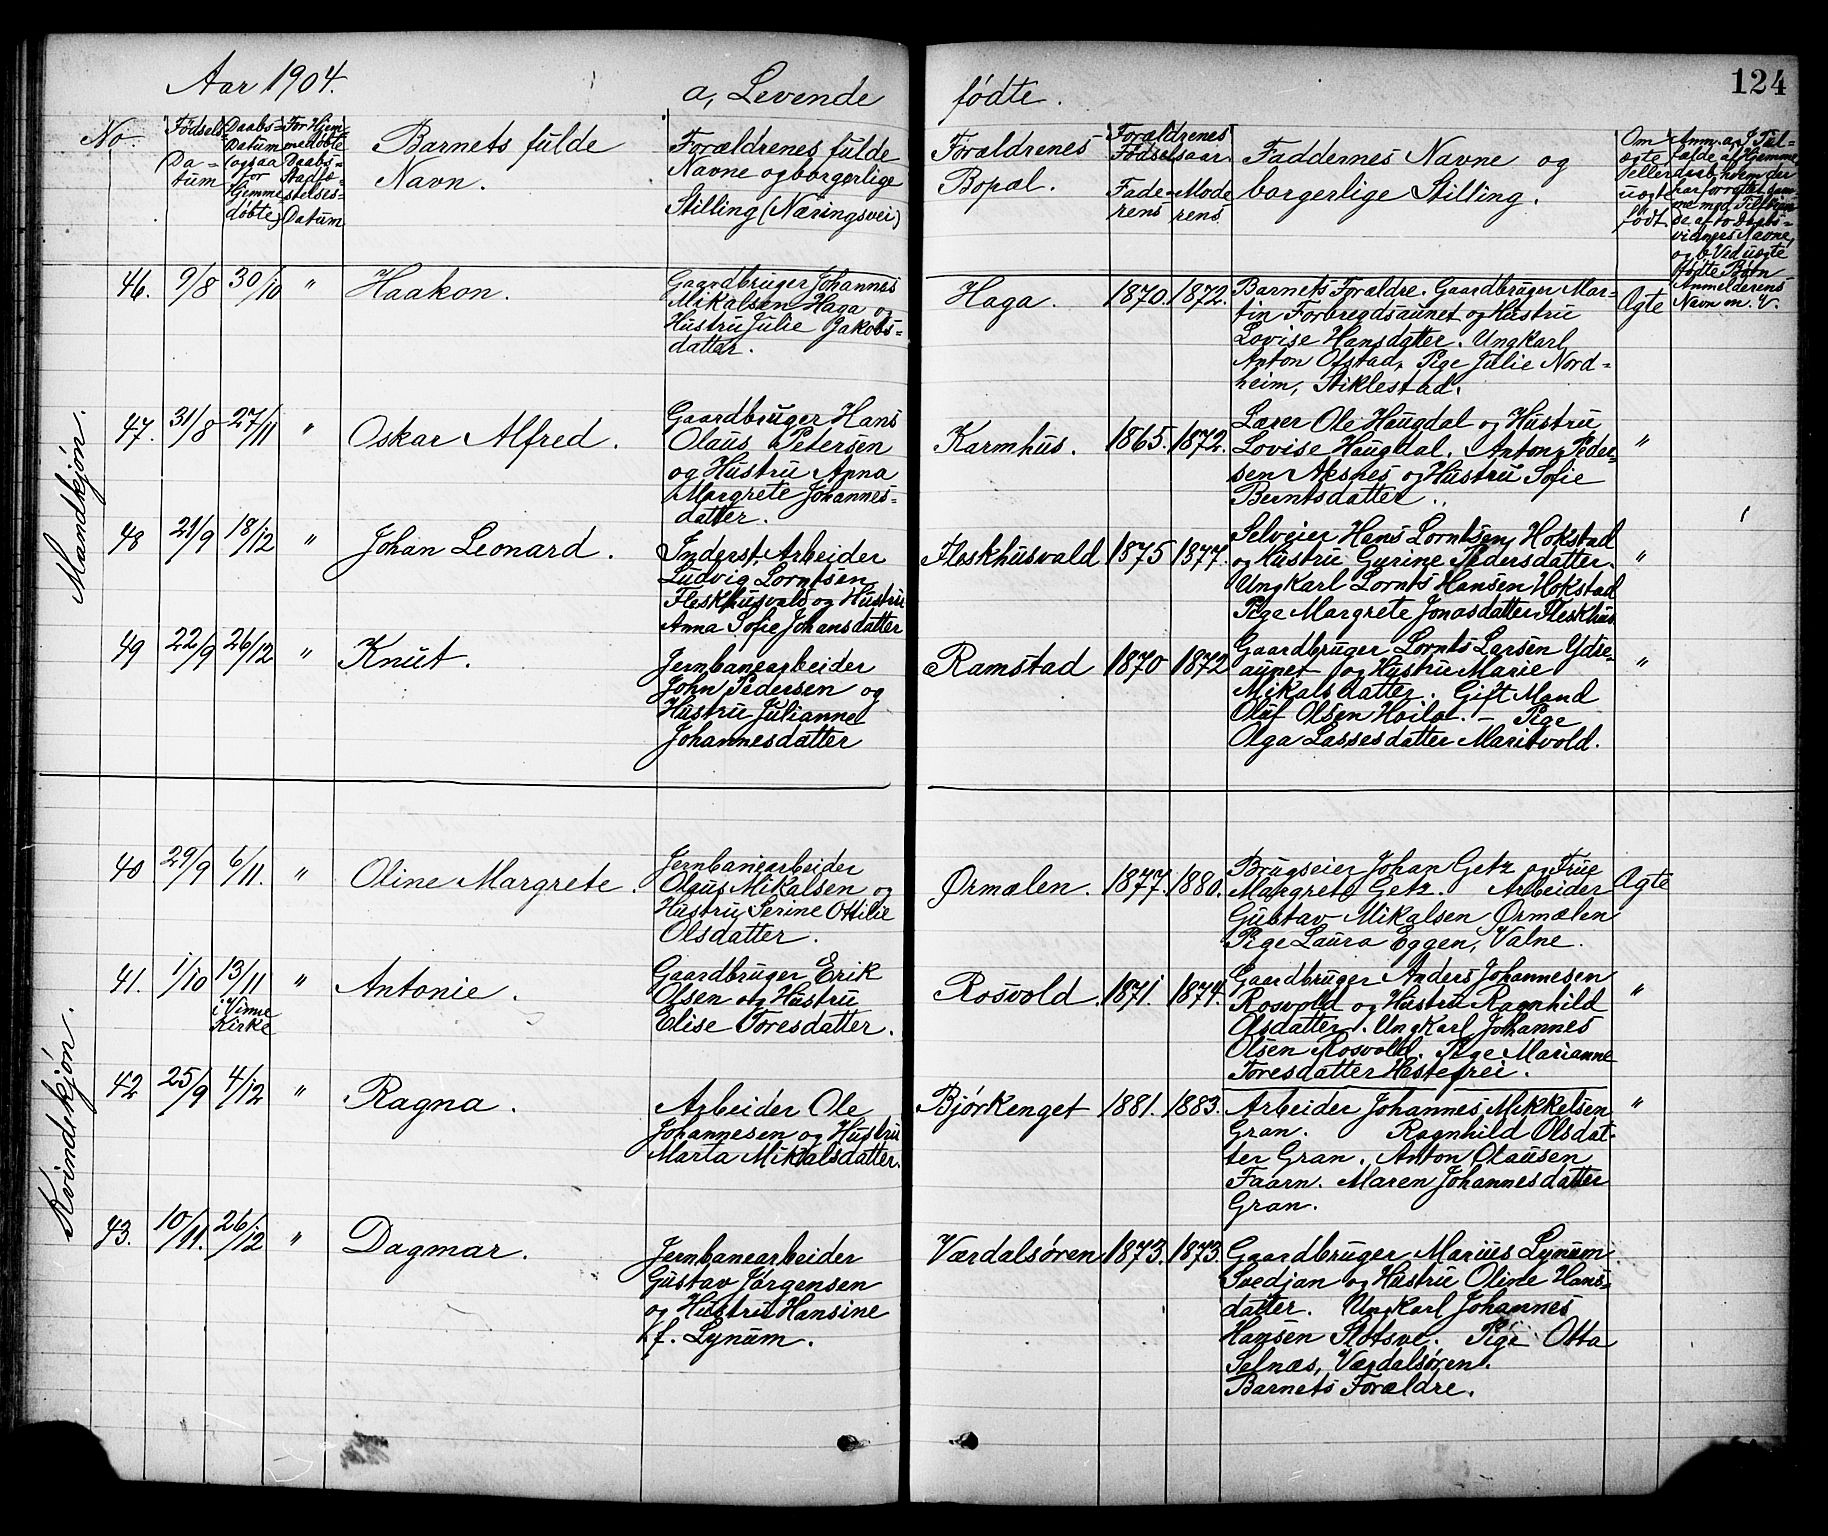 124
Aar 1904.
a, Levende fødte.
No.
Fødsels-
Da-
tum
Daabs-
Datum
(ogsaa
for
Hjemme
døbte)
For Hjem-
medøbte
Daabs-
Stadfæ-
stelses-
Datum
Barnets fulde
Navn.
Forældrenes fulde
Navne og borgerlige
Stilling (Næringsvei)
Forældrenes
Bopæl.
Forældrenes
Fødselsaar
Fade-
rens
Mode
rens
Faddernes Navne og
borgerlige Stilling.
Om
ægte
eller
uægte
født.
Anm. a, I Til-
fælde af Hjemme
daab, hvem der
har forrettet sam-
me med
de af to Daabs-
vidners Navne,
og b Ved uægte
fødte Børn
Anmelderens
Navn m. V.
Mandkjøn.
46. 9/8 30/10 " Haakon.
Gaardbruger Johannes
Mikalsen Haga og
Hustru Julie Jakobs-
datter.
Haga. 1870. 1872.
Barnets Forældre. Gaardbruger Mar-
tin Forbregdsaunet og Hustru
Lovise Hansdatter. Ungkarl
Anton Ofstad, Pige Julie Nord-
heim, Stiklestad.
Ægte
47. 31/8 27/11 " Oskar Alfred.
Gaardbruger Hans
Olaus Petersen
og Hustru Anna
Margrete Johannes-
datter.
Karmhus. 1865. 1872.
Lærer Ole Haugdal og Hustru
Lovise Haugdal. Anton Peder-
sen Aksnes og Hustru Sofie
Berntsdatter.
"
48 21/9 18/12 " Johan Leonard.
Inderst, Arbeider
Ludvig Lorntsen
Fleskhusvald og Hustru
Anna Sofie Johansdatter
Fleskhusvald 1875 1877.
Selveier Hans Lorntsen Hokstad
og Hustru Gurine Pedersdatter.
Ungkarl Lornts Hansen Hokstad
Pige Margrete Jonasdatter Fleskhus
"
49 22/9 26/12 " Knut.
Jernbanearbeider
John Pedersen og
Hustru Julianne
Johannesdatter
Ramstad 1870 1872
Gaardbruger Lornts Larsen Ydse-
aunet og Hustru Marie
Mikalsdatter. Gift Mand
Oluf Olsen Hoila. - Pige
Olga Lassesdatter Maritvold.
"
Kvindekjøn.
40 29/9 6/11. " Oline Margrete.
Jernbanearbeider
Olaus Mikalsen og
Hustru Serine Ottilie
Olsdatter.
Ørmælen. 1877. 1880.
Brugseier Johan Getz og Frue
Margrete Getz. Arbeider
Gustav Mikalsen Ørmælen
Pige Laura Eggen, Valne.
Ægte
41. 1/10 13/11 " Antonie.
i Vinne
Kirke
Gaardbruger Erik
Olsen og Hustru
Elise Toresdatter.
Rosvold. 1871. 1874.
Gaardbruger Anders Johannesen
Rosvold og Hustru Ragnhild
Olsdatter. Ungkarl Johannes
Olsen Rosvold. Pige Marianne
Toresdatter Hestegrei.
"
42 25/9 4/12 " Ragna.
Arbeider Ole
Johannesen og Hustru
Marta Mikalsdatter.
Bjørkenget 1881. 1883.
Arbeider Johannes Mikkelsen
Gran. Ragnhild Olsdat-
ter Gran. Anton Olausen
Faarn. Maren Johannesdatter
Gran.
"
43. 10/11. 26/12 " Dagmar.
Jernbanearbeider
Gustav Jørgensen
og Hustru Hansine
f. Lynum.
Værdalsøren 1873. 1873.
Gaardbruger Marius Lynum
Svedjan og Hustru Oline Hans-
datter. Ungkarl Johannes
Hansen Slotsve. Pige Otta
Selnæs, Værdalsøren.
Barnets Forældre.